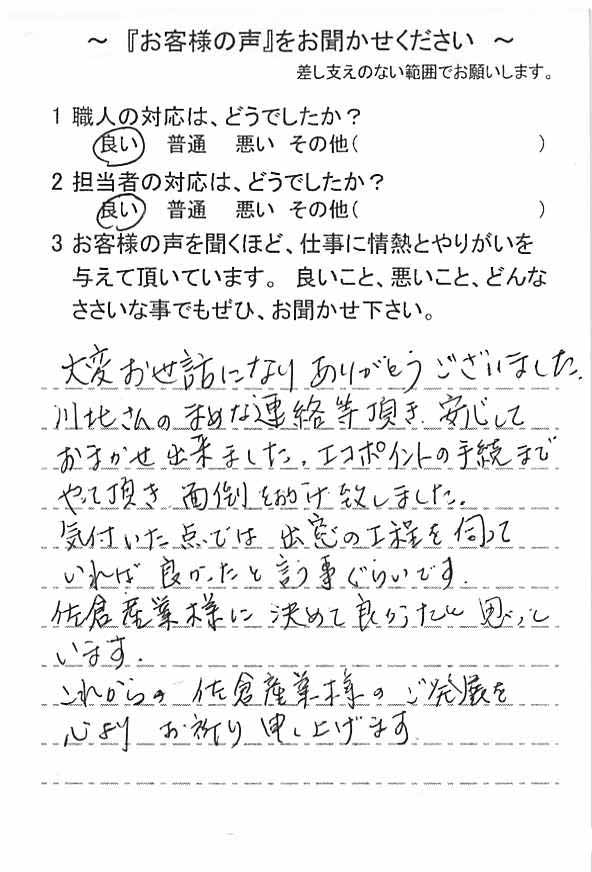 ～ 『お客様の声』をお聞かせください ～
差し支えのない範囲でお願いします。
1 職人の対応は、どうでしたか？
良い 普通 悪い その他( )
2 担当者の対応は、どうでしたか？
良い 普通 悪い その他( )
3 お客様の声を聞くほど、仕事に情熱とやりがいを
与えて頂いています。 良いこと、悪いこと、どんな
ささいな事でもぜひ、お聞かせ下さい。
大変お世話になり ありがとうございました。
川北さんのまめな連絡等頂き、安心して
おまかせ出来ました。エコポイントの手続まで
やって頂き 面倒をお掛け致しました。
気付いた点では 出窓の工程を伺って
いれば良かったと言う事ぐらいです。
佐倉産業様に決めて良かったと思って
います。
これからの佐倉産業様のご発展を
心よりお祈り申し上げます